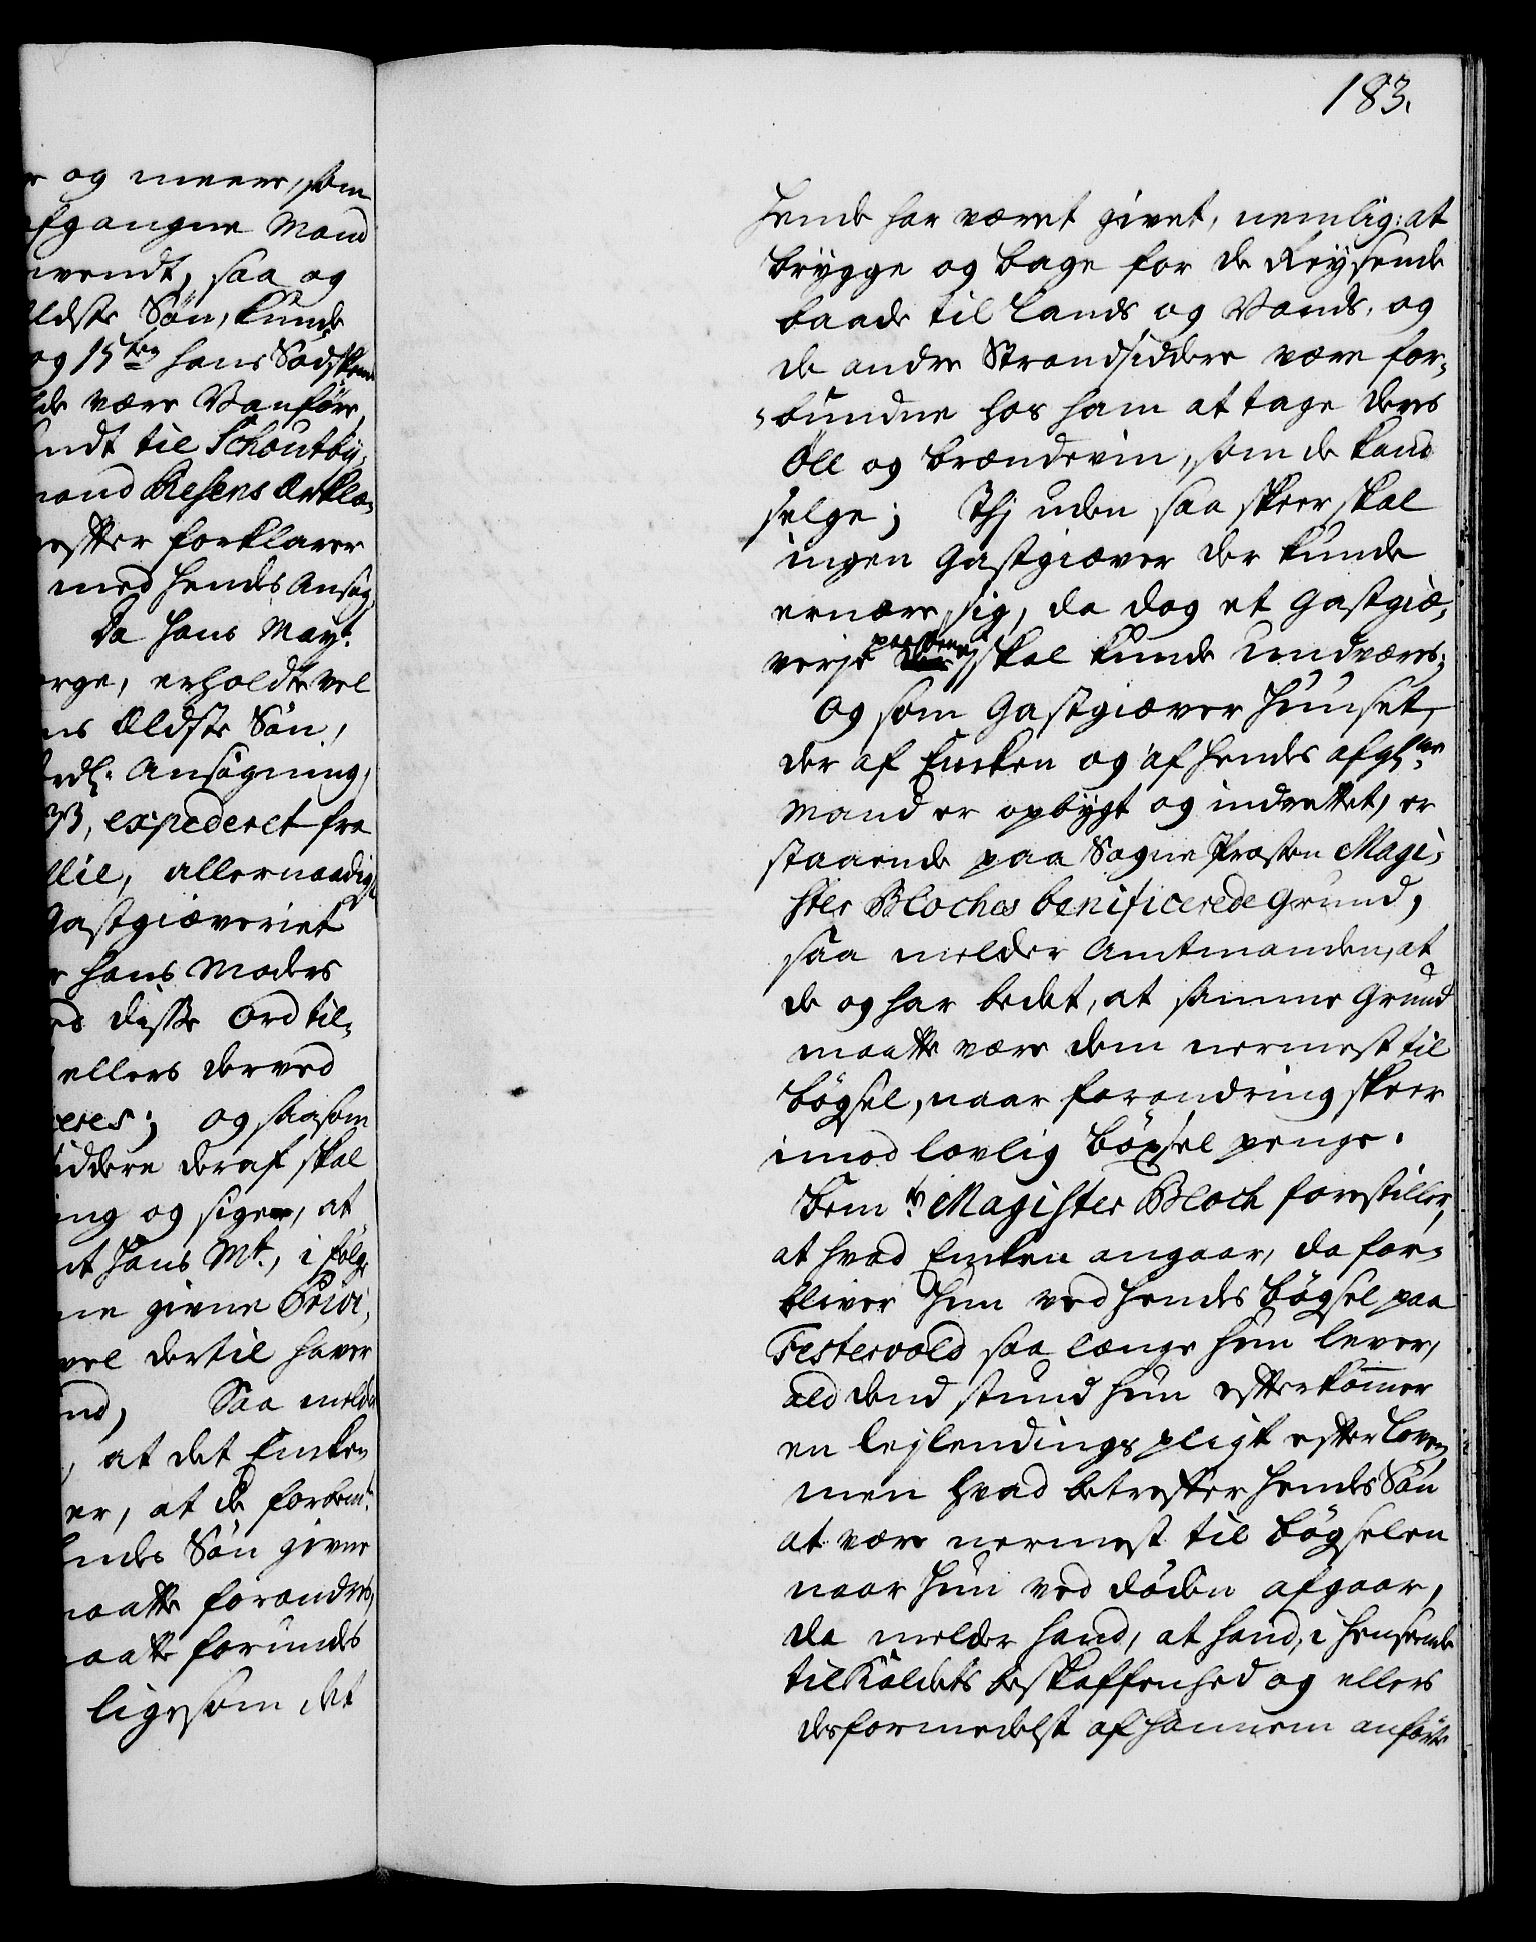 183.
og meere, som
afgangne Mand
nvendt, saa og
Eldste Søn, kunde
og 15 hans
de være Vanføre,
endt til Schoutby,
mand Resens Erklæ,
efter forklarer
med hendes Ansøg,
Da Hans Mayt.
orge, erholdte vel
ns Eldste Søn,
Ansøgning,
33, expederet fra
llie, allernaadigst
Gastgiæveriet
hans Moders
disse Ord til,
ellers derved
ceres; og saasom
siddere deraf skal
ing og siger, at
at Hans Mt., i følge
ne givne Privi,
vel dertil haver
nd, Saa melder
, at det Enken
er, at de forbemt.
hendes Søn givne
maatte forandres,
maatte forundes
ligesom det
hende har været givet, nemlig: at
brygge og bage for de Reysende
baade til Lands og Vands, og
de andre Strandsiddere være for,
bundne hos ham at tage deres
Øll og brændevin, som de kand
selge; Thj uden saa skeer skal
ingen Gastgiæver der kunde
ernære sig, da dog et Gastgiæ,
verje paa stedet ej skal kunde undværes;
Og som Gastgiæver Huuset,
der af Enken og af hendes afgl:ne
Mand er opbygt og indrettet, er
staaende paa Sogne Præsten Magi,
ster Bloches benificerede Grund,
saa melder Amtmanden, at
de og har bedet, at samme Grund
maatte være dem nermest til
bøgsel, naar forandring skeer
imod lovlig bøxsel penge.
bem:te Magister Bloch forestiller,
at hvad Enken angaar, da for,
bliver Hun ved hendes bøgsel paa
Festervold saa længe hun lever,
ald dend stund hun efterkommer
en lejlendings pligt efter Loven,
men hvad betreffer hendes Søn
at være nermest til bøgselen
naar Hun ved døden afgaar,
da melder hand, at hand, i henseende
til Kaldets beskaffenhed og ellers
desformedelst af hannem anførte